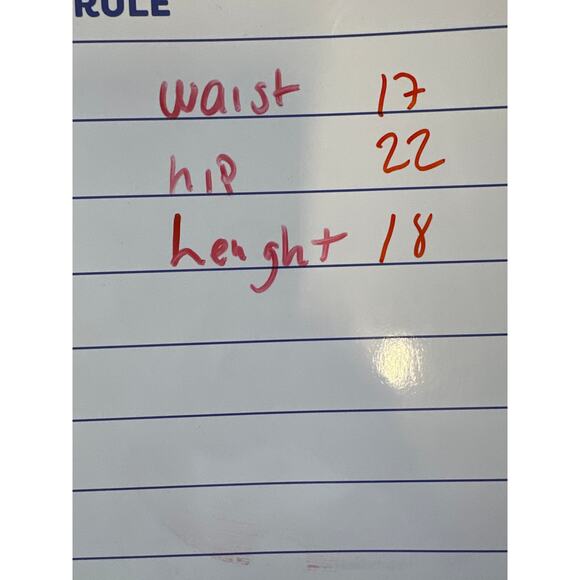 RULE
waist 17
hip 22
heught 18